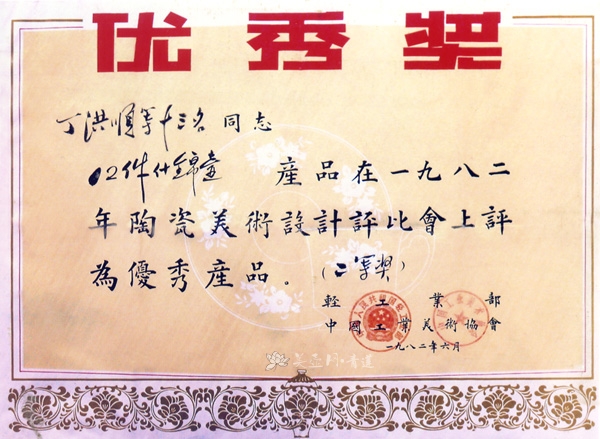 优秀奖
丁洪順等十三名 同志
02件什錦壺 産品在一九八二
年陶瓷美術設計評比會上評
為優秀産品。(二等獎)
輕工業部
中國工業美術協會
一九八二年六月